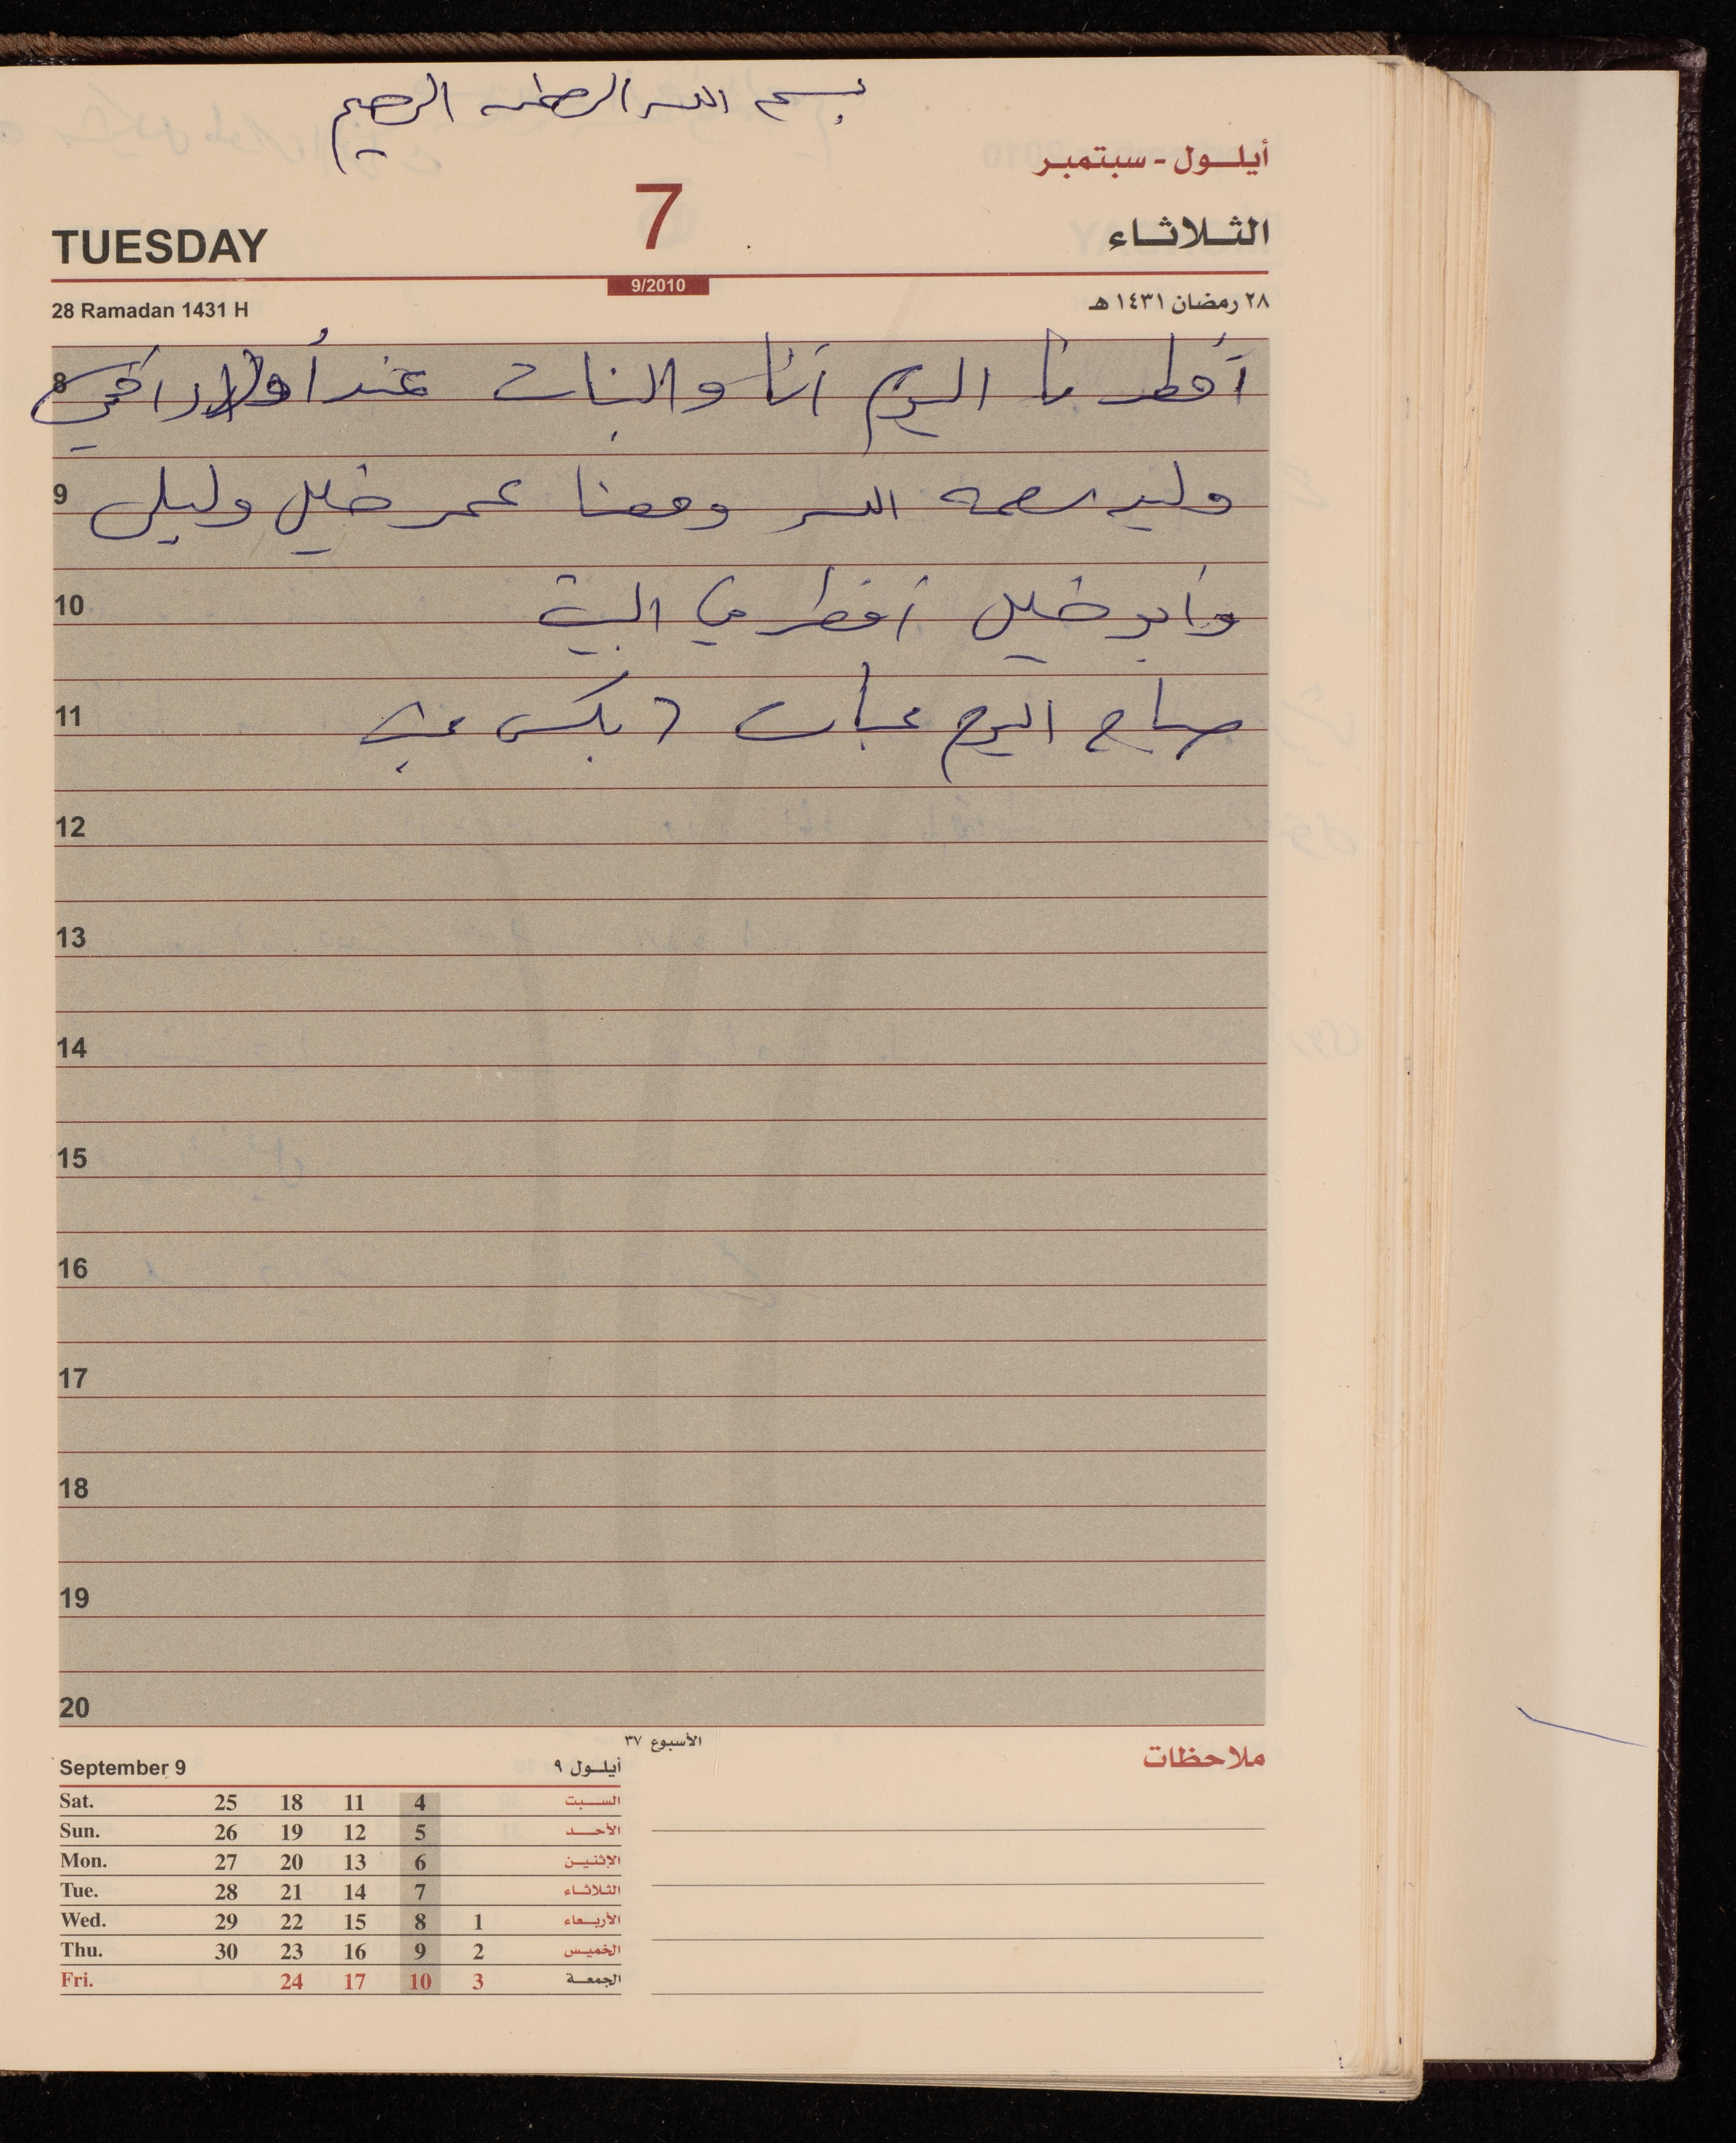 بسم الله الرحمن الرحيم
أيلول - سبتمبر
TUESDAY 7 الثلاثاء
9/2010
28 Ramadan 1431 H ٢٨ رمضان ١٤٣١ هـ
8 أفطرنا اليوم أنا والبنات عند أولاد أخي
9 وليد رحمه الله ومعنا عمر خليل وليلى
10 وأبو خليل أفطر في البيت
11 صباح اليوم عبأت بكس عنب
12
13
14
15
16
17
18
19
20
الأسبوع ٣٧
ملاحظات
September 9 أيلول ٩
Sat. 25 18 11 4 السبت
Sun. 26 19 12 5 الأحد
Mon. 27 20 13 6 الإثنين
Tue. 28 21 14 7 الثلاثاء
Wed. 29 22 15 8 1 الأربعاء
Thu. 30 23 16 9 2 الخميس
Fri. 24 17 10 3 الجمعة